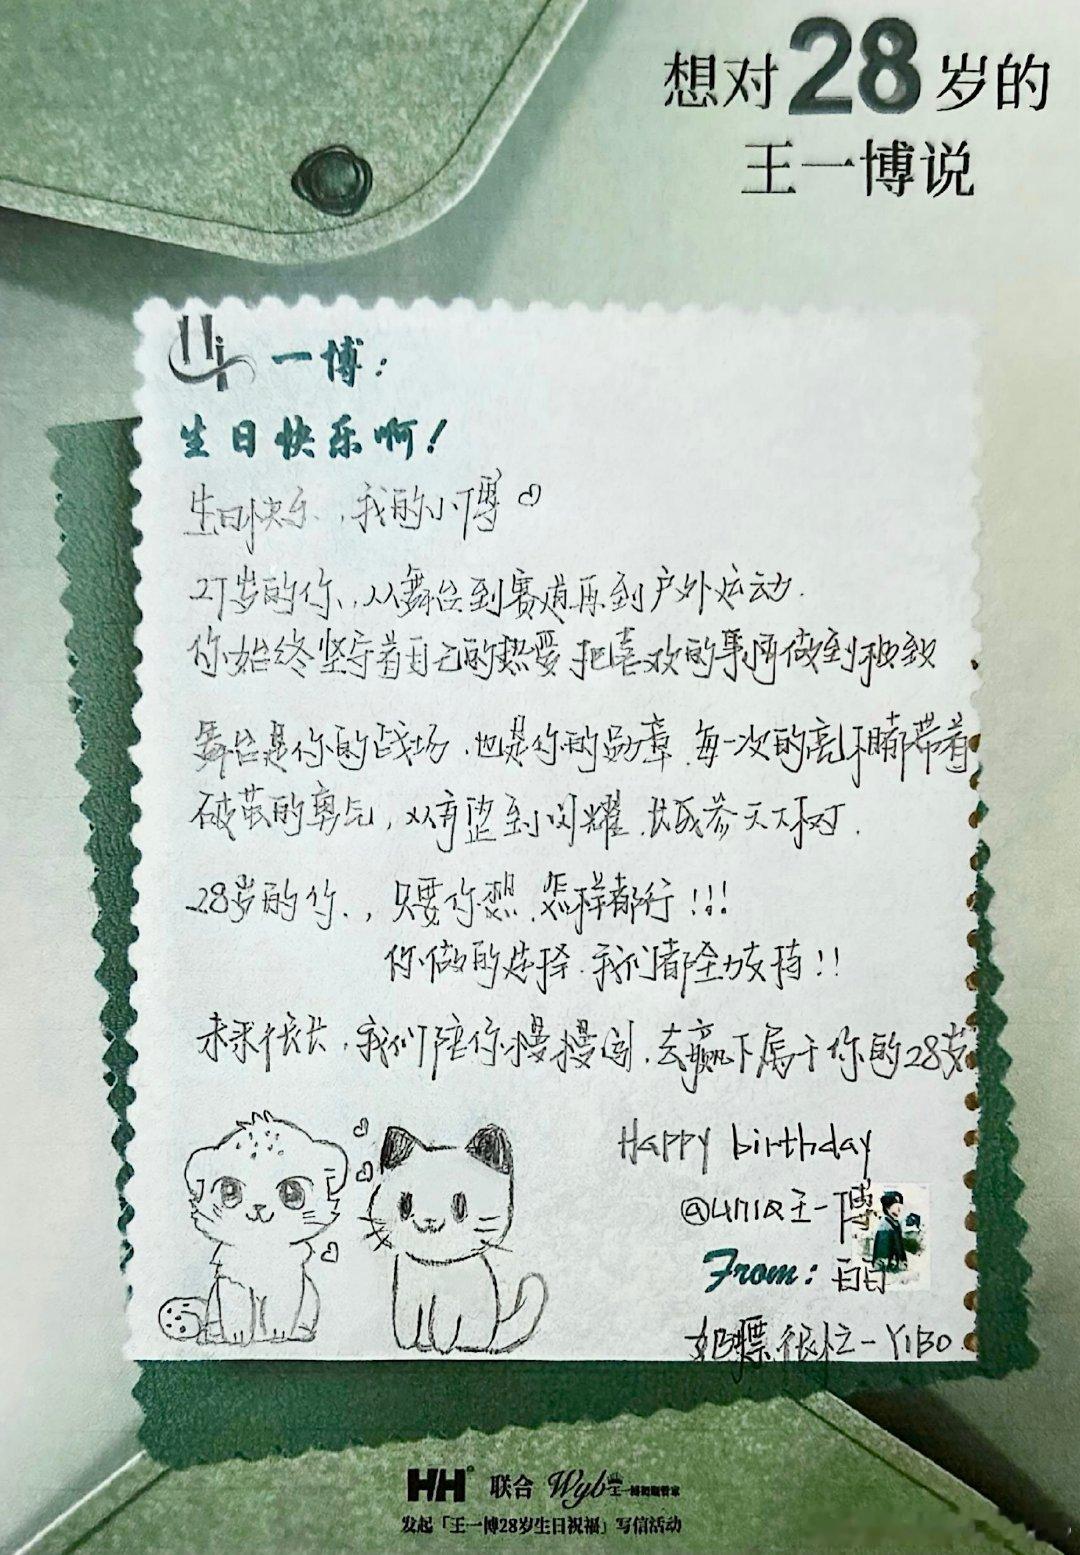 想对28岁的
王一博说
Hi 一博：
生日快乐啊！
生日快乐，我的小博
27岁的你，从舞台到赛道再到户外运动.
你始终坚守着自己的热爱 把喜欢的事情做到极致
舞台是你的战场，也是你的勋章.每一次的亮相都带着
破茧的勇气，从 到闪耀.长成参天大树.
28岁的你，只要你想 怎样都行!!!
你做的选择 我们都全力支持!!
未来很长，我们陪你慢慢闯.去赢下属于你的28岁
Happy birthday
@UNIQ王一博
From：
很忙-YIBO
HH 联合 Wyb王一博
发起「王一博28岁生日祝福」写信活动